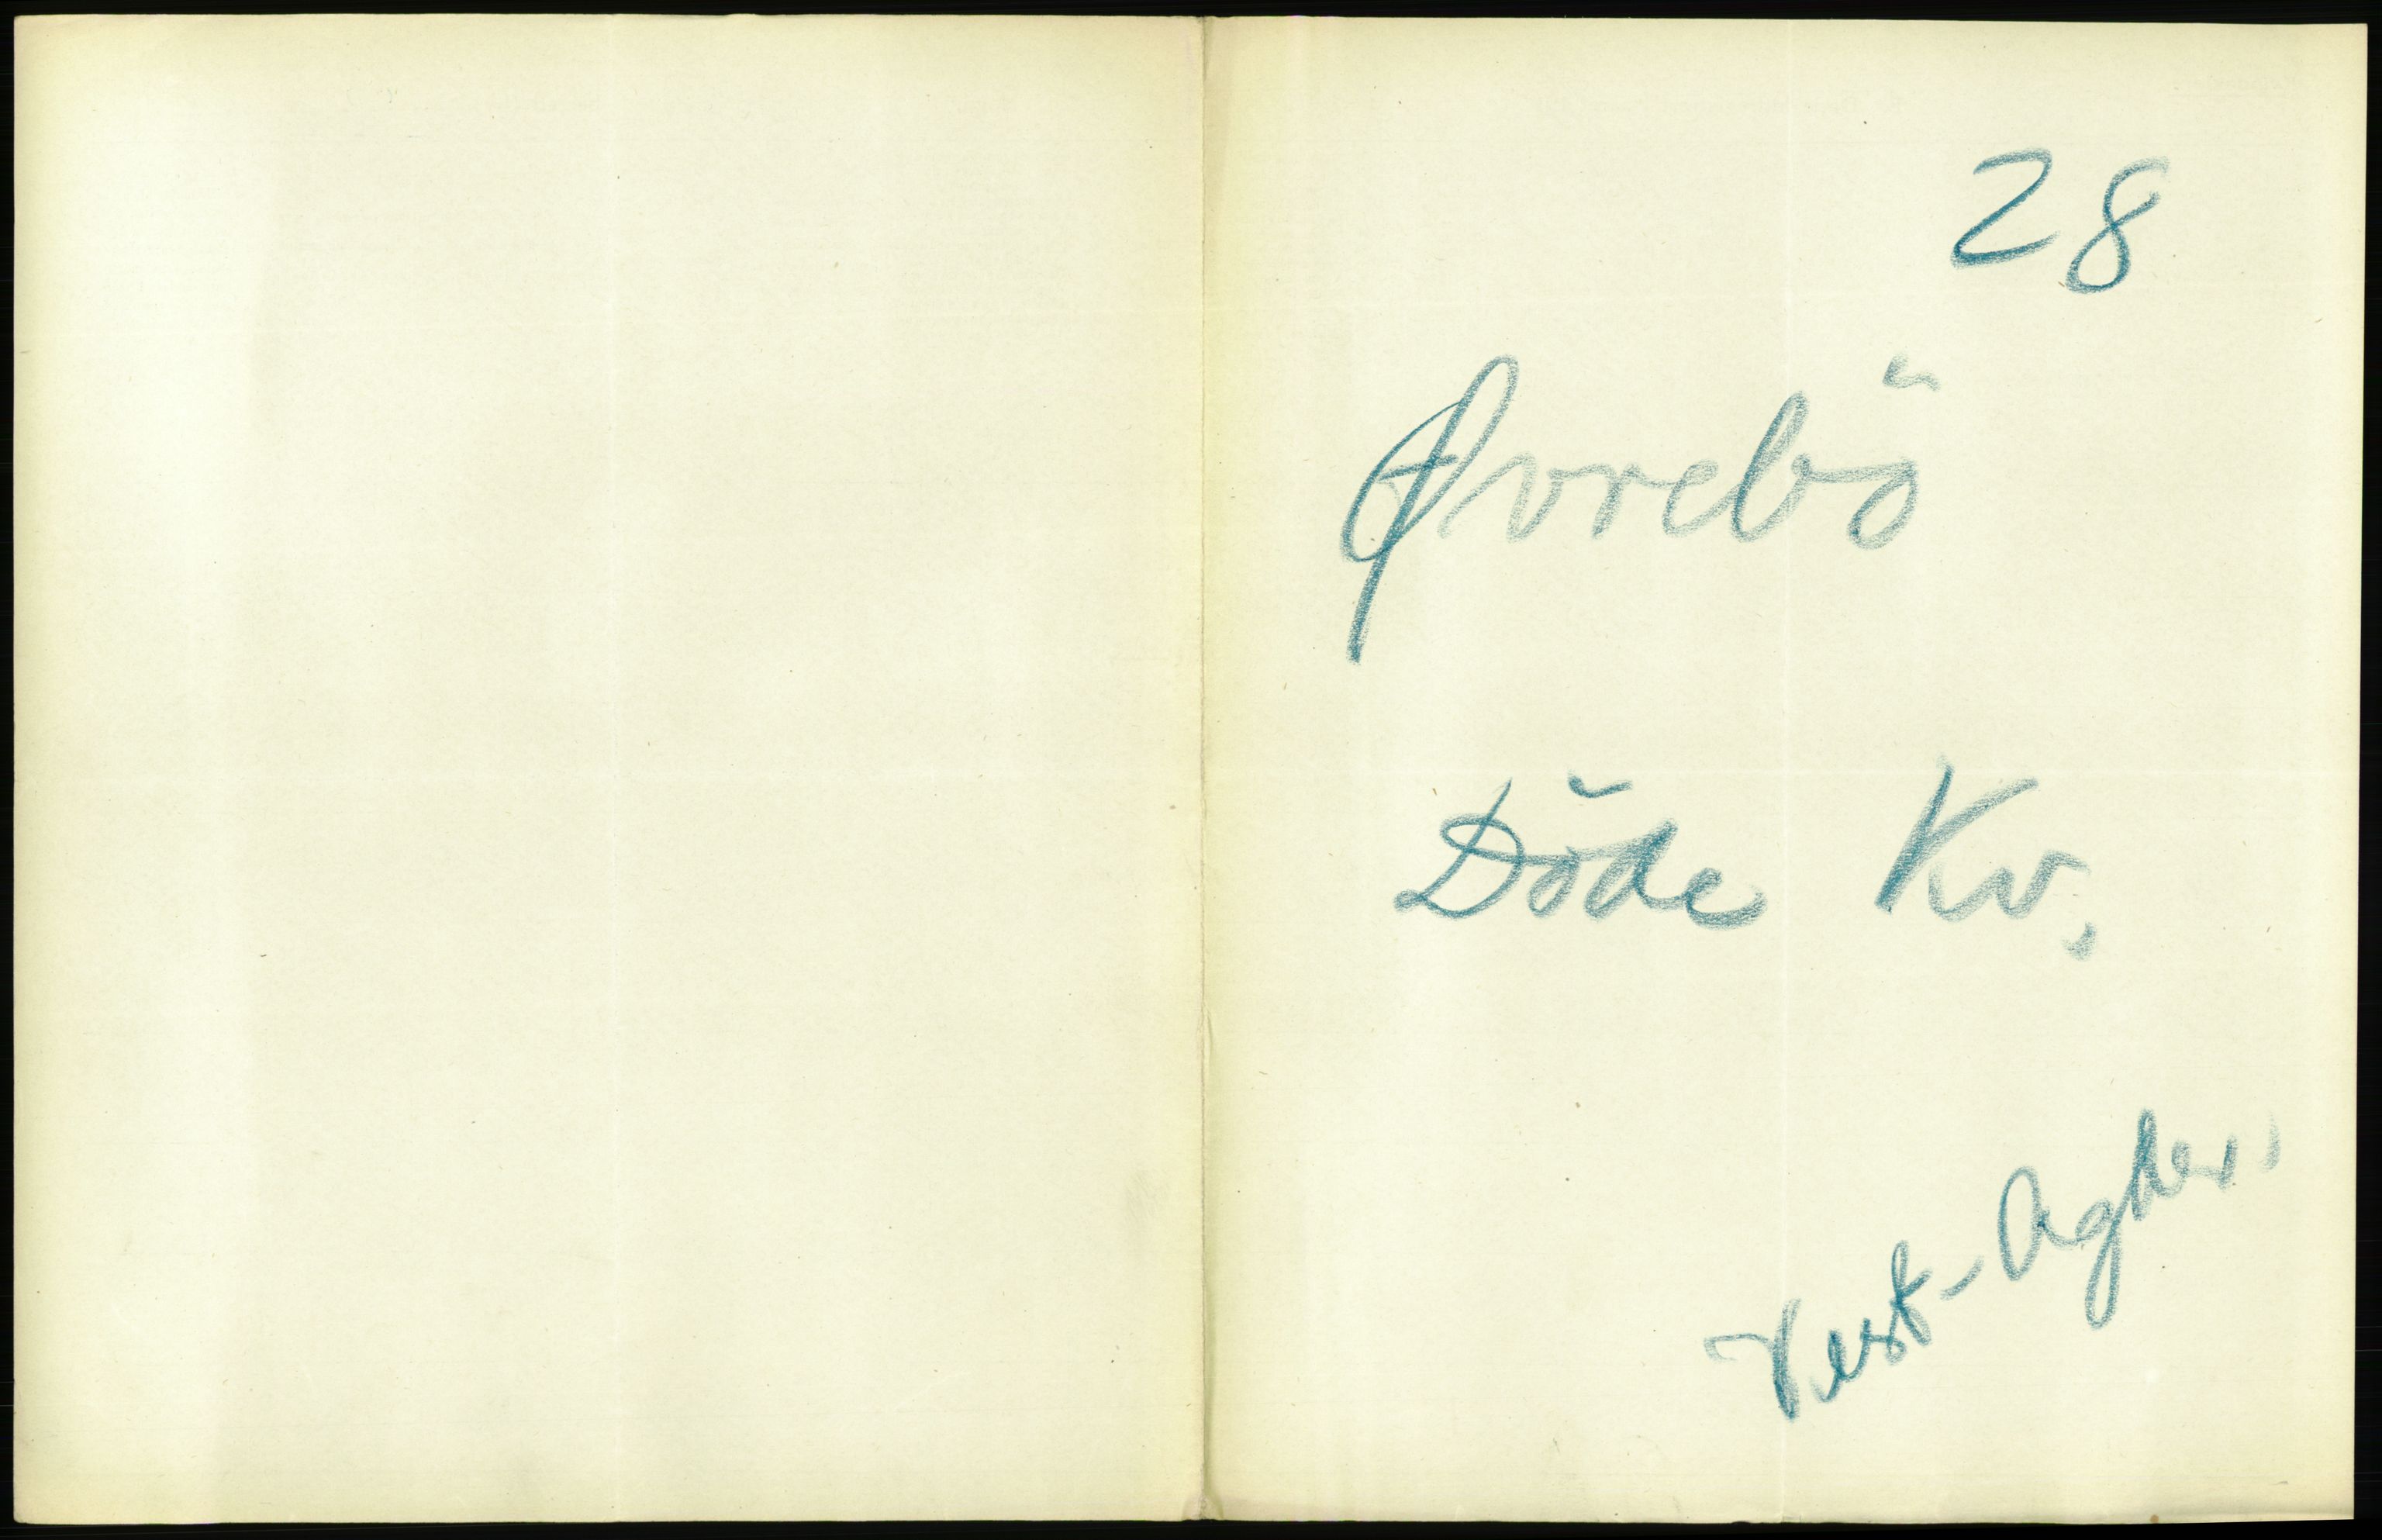 28
Øvrebö
Döde Kv.
Vest-Agder.